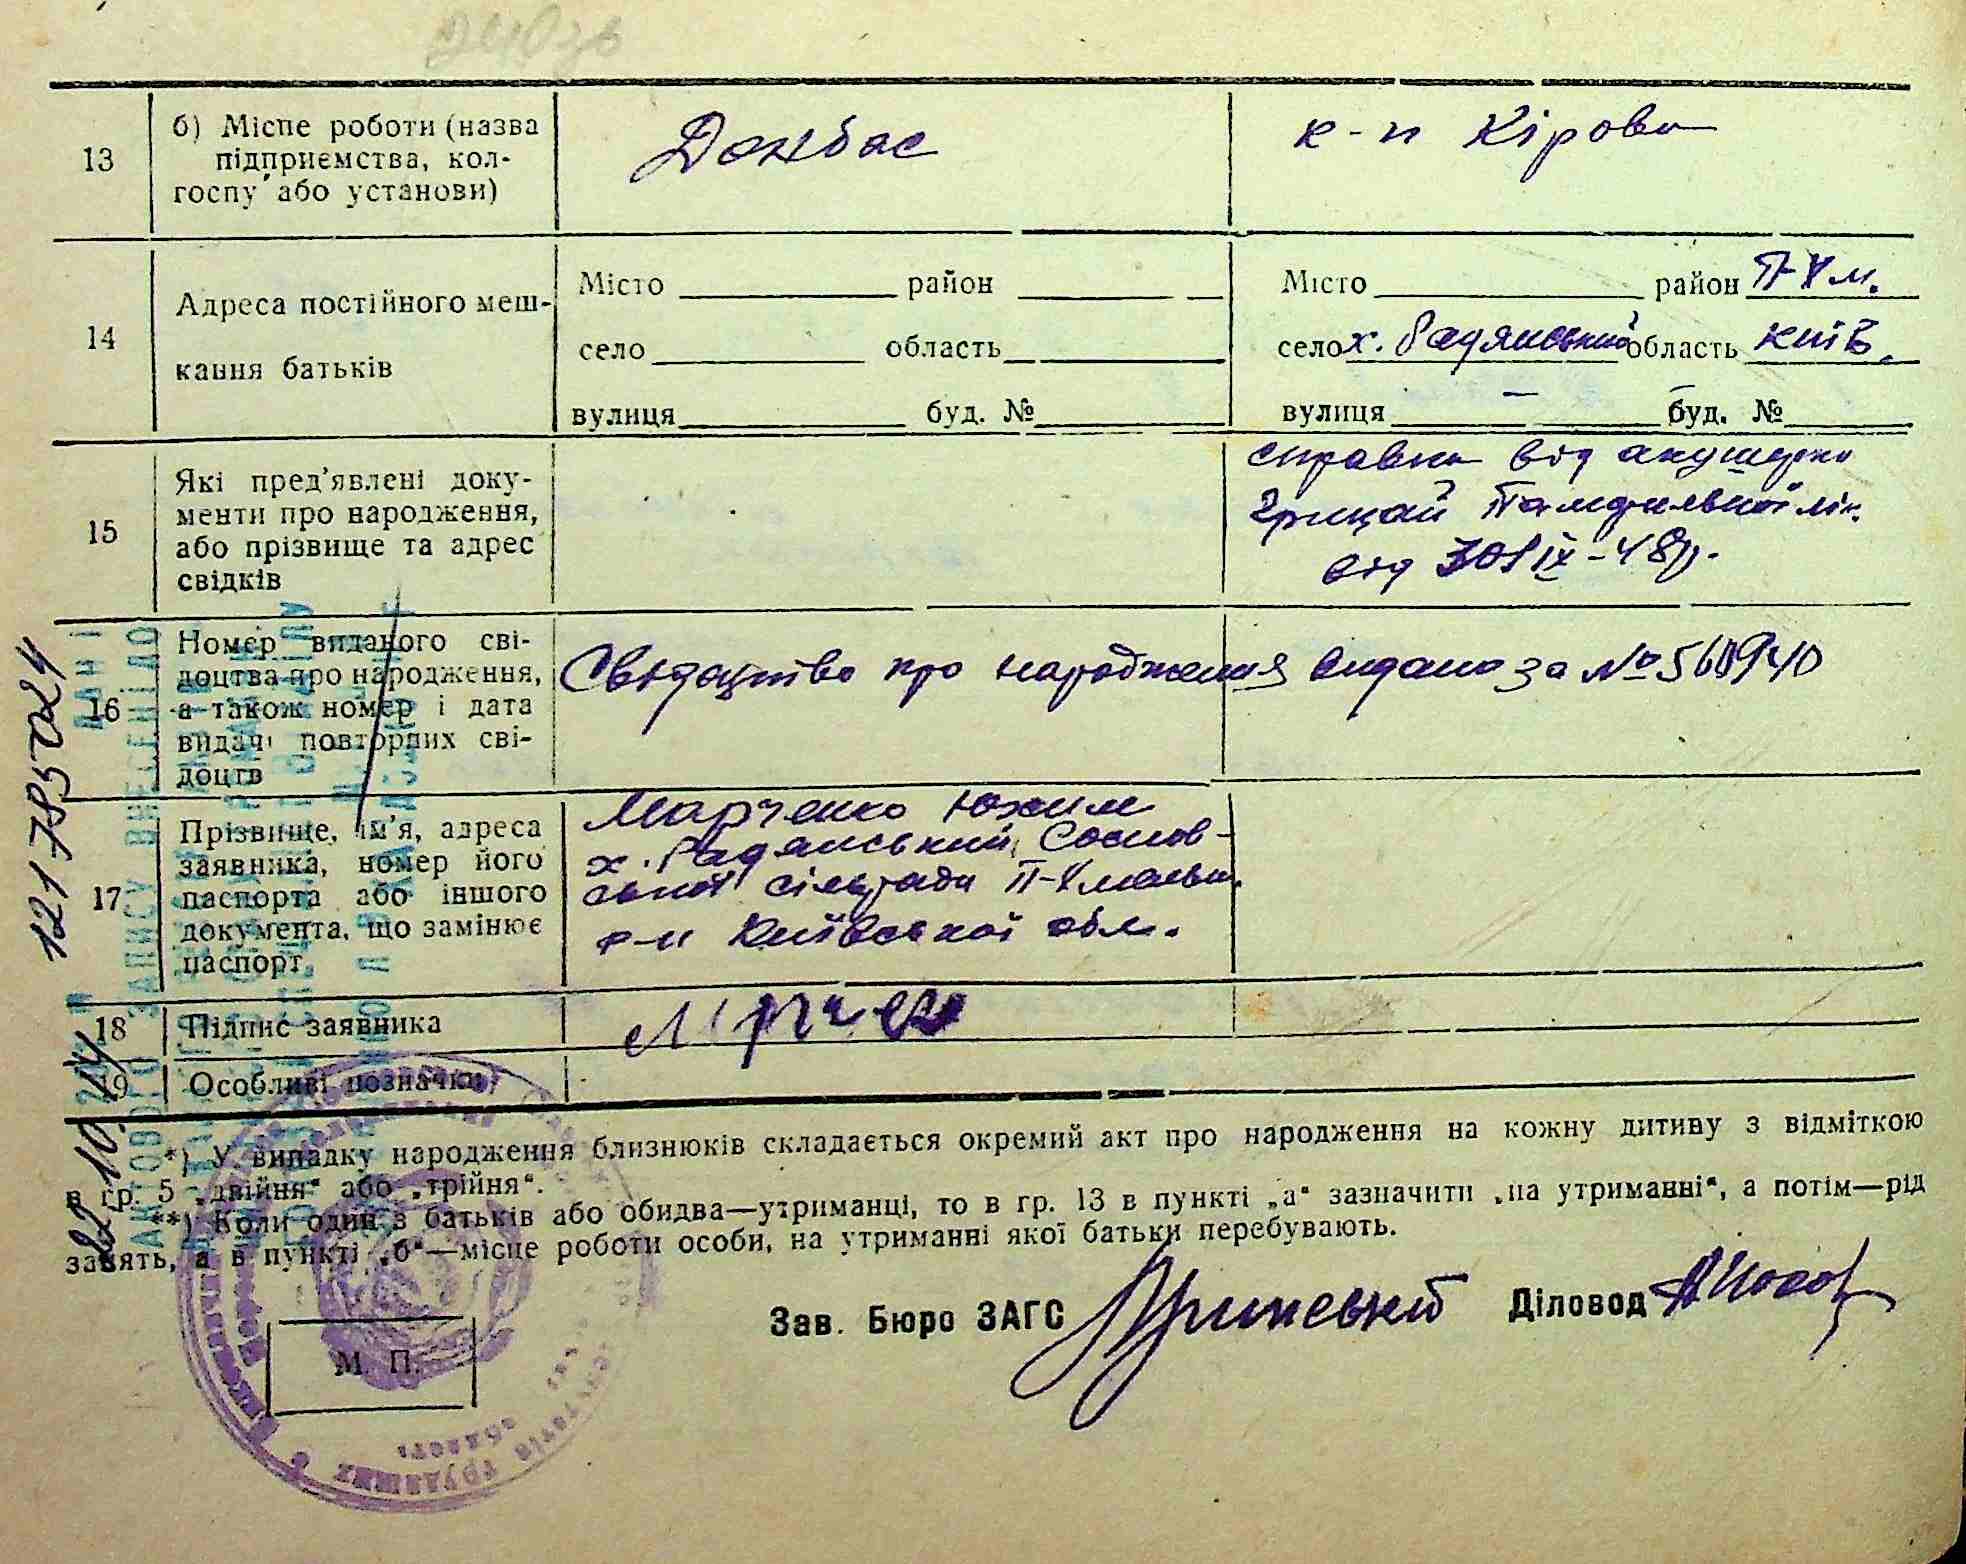 13
б) Місце роботи (назва
підприємства, кол-
госпу або установи)
Донбас
к-п Кірова
14
Адреса постійного меш-
кання батьків
Місто район
село область
вулиця буд. №
Місто район П-Ум.
село х. Радянський область Київ.
вулиця — буд. №
15
Які пред'явлені доку-
менти про народження,
або прізвище та адрес
свідків
справка від акушерки
Грицай
від IX-48р.
16
Номер виданого сві-
доцтва про народження,
а також номер і дата
видачі повторних сві-
доцтв
Свідоцтво про народження видано за №
17
Прізвище, ім'я, адреса
заявника, номер його
паспорта або іншого
документа, що замінює
паспорт
Марченко Юхим
х. Радянський, Соснов-
ської сільради П-Умансь.
р-н Київської обл.
18
Підпис заявника
19
Особливі позначки
*) У випадку народження близнюків складається окремий акт про народження на кожну дитину з відміткою
в гр. 5 „двійня“ або „трійня“.
**) Коли один з батьків або обидва—утриманці, то в гр. 13 в пункті „а“ зазначити „на утриманні“, а потім—рід
занять, а в пункті „б“—місце роботи особи, на утриманні якої батьки перебувають.
Зав. Бюро ЗАГС
Діловод
М. П.
121785024